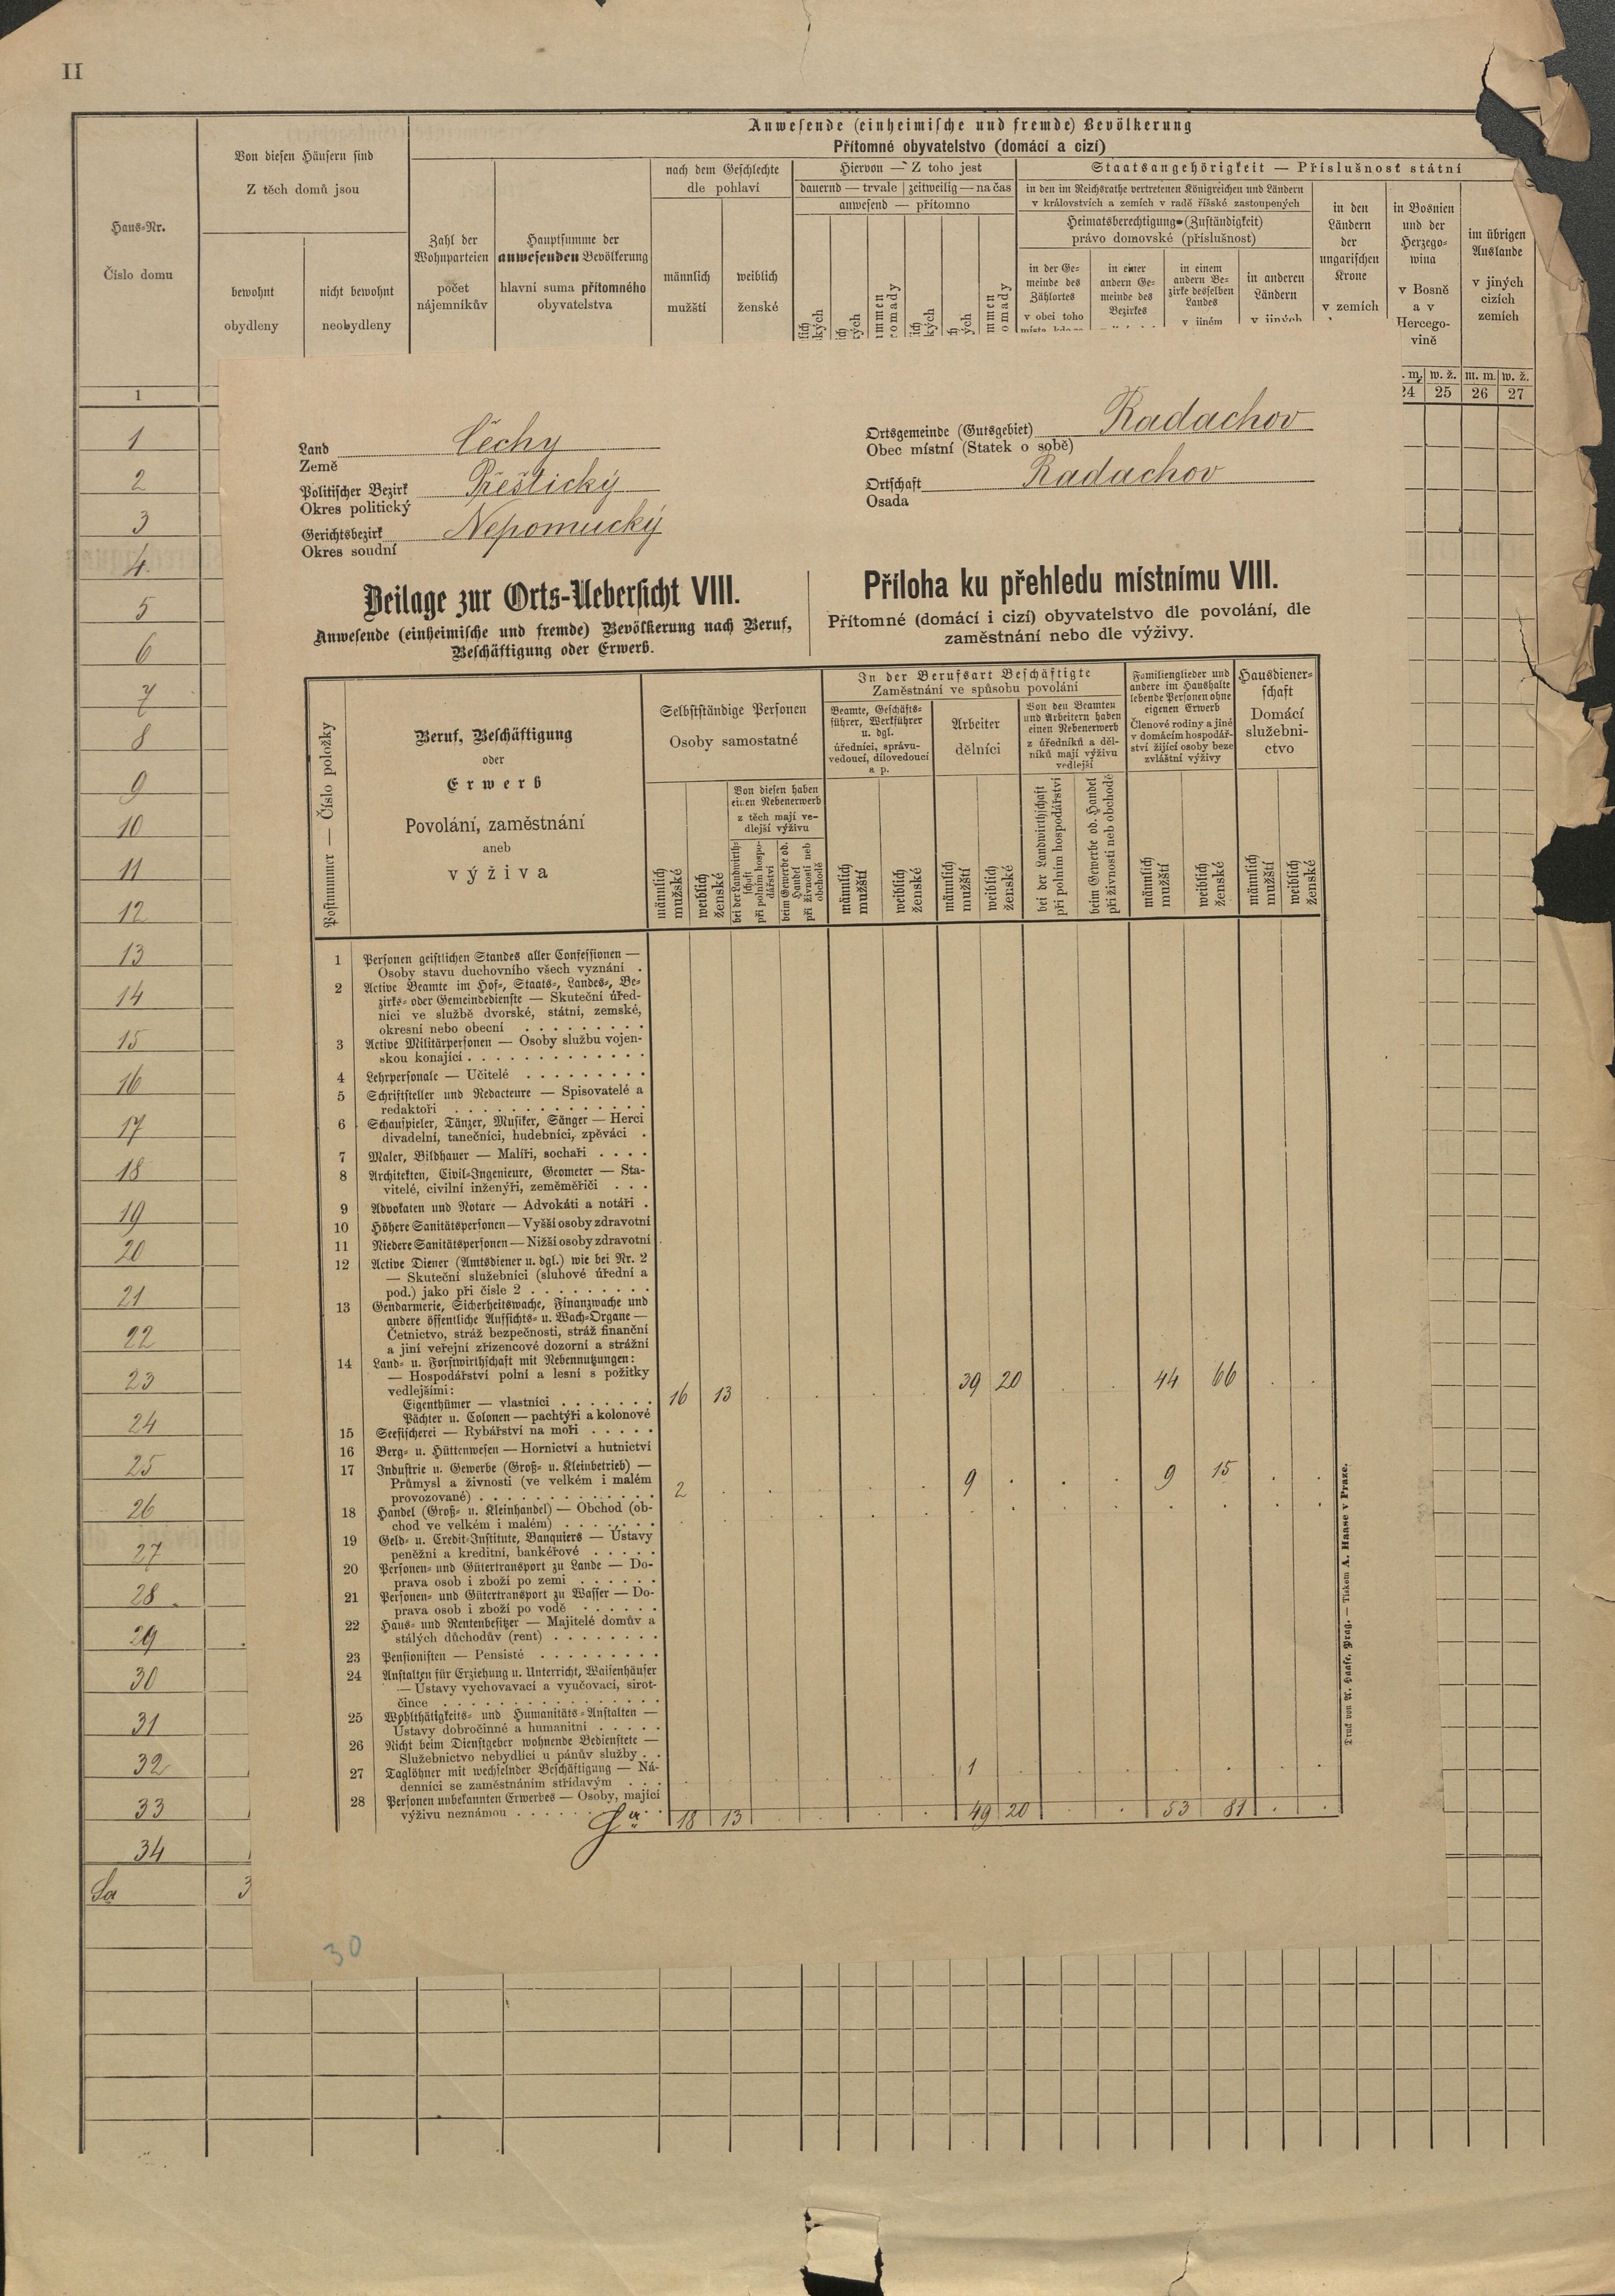 II
Anwesende (einheimische und fremde) Bevölkerung
Přítomné obyvatelstvo (domácí a cizí)
Haus-Nr.
Číslo domu
Von diesen Häusern sind
Z těch domů jsou
bewohnt
obydleny
nicht bewohnt
neobydleny
Zahl der
Wohnparteien
počet
nájemníkův
Hauptsumme der
anwesenden Bevölkerung
hlavní suma přítomného
obyvatelstva
nach dem Geschlechte
dle pohlaví
männlich
mužští
weiblich
ženské
Hiervon — Z toho jest
dauernd — trvale | zeitweilig — na čas
anwesend — přítomno
Staatsangehörigkeit — Příslušnost státní
in den im Reichsrathe vertretenen Königreichen und Ländern
v královstvích a zemích v radě říšské zastoupených
Heimatsberechtigung (Zuständigkeit)
právo domovské (příslušnost)
in der Ge-
meinde des
Zählortes
v obci toho
in einer
andern Ge-
meinde des
Bezirkes
in einem
andern Be-
zirke desselben
Landes
v jiném
in anderen
Ländern
v jiných
in den
Ländern
der
ungarischen
Krone
v zemích
in Bosnien
und der
Herzego-
wina
v Bosně
a v
Hercego-
vině
im übrigen
Auslande
v jiných
cizích
zemích
m. w. ž. m. m. w. ž.
1 24 25 26 27
1
2
3
4
5
6
7
8
9
10
11
12
13
14
15
16
17
18
19
20
21
22
23
24
25
26
27
28
29
30
31
32
33
34
Sa 3
Land Čechy
Země
Politischer Bezirk Přeštický
Okres politický
Gerichtsbezirk Nepomucký
Okres soudní
Ortsgemeinde (Gutsgebiet) Radachov
Obec místní (Statek o sobě)
Ortschaft Radachov
Osada
Beilage zur Orts-Uebersicht VIII.
Anwesende (einheimische und fremde) Bevölkerung nach Beruf,
Beschäftigung oder Erwerb.
Příloha ku přehledu místnímu VIII.
Přítomné (domácí i cizí) obyvatelstvo dle povolání, dle
zaměstnání nebo dle výživy.
Postnummer — Číslo položky
Beruf, Beschäftigung
oder
Erwerb
Povolání, zaměstnání
aneb
výživa
Selbstständige Personen
Osoby samostatné
männlich
mužské
weiblich
ženské
Von diesen haben
einen Nebenerwerb
z těch mají ve-
dlejší výživu
bei der Landwirth-
schaft
při polním hospo-
dářství
beim Gewerbe od.
Handel
při živnosti neb
obchodě
In der Berufsart Beschäftigte
Zaměstnání ve spůsobu povolání
Beamte, Geschäfts-
führer, Werkführer
u. dgl.
úředníci, správu-
vedoucí, dílovedoucí
a p.
männlich
mužští
weiblich
ženské
Arbeiter
dělníci
männlich
mužští
weiblich
ženské
Von den Beamten
und Arbeitern haben
einen Nebenerwerb
z úředníků a děl-
níků mají výživu
vedlejší
bei der Landwirthschaft
při polním hospodářství
beim Gewerbe od. Handel
při živnosti neb obchodě
Familienglieder und
andere im Haushalte
lebende Personen ohne
eigenen Erwerb
Členové rodiny a jiné
v domácím hospodář-
ství žijící osoby beze
zvláštní výživy
männlich
mužští
weiblich
ženské
Hausdiener-
schaft
Domácí
služebni-
ctvo
männlich
mužští
weiblich
ženské
1 Personen geistlichen Standes aller Confessionen —
Osoby stavu duchovního všech vyznání .
2 Active Beamte im Hof-, Staats-, Landes-, Be-
zirks- oder Gemeindedienste — Skuteční úřed-
níci ve službě dvorské, státní, zemské,
okresní nebo obecní
3 Active Militärpersonen — Osoby službu vojen-
skou konající
4 Lehrpersonale — Učitelé
5 Schriftsteller und Redacteure — Spisovatelé a
redaktoři
6 Schauspieler, Tänzer, Musiker, Sänger — Herci
divadelní, tanečníci, hudebníci, zpěváci .
7 Maler, Bildhauer — Malíři, sochaři
8 Architekten, Civil-Ingenieure, Geometer — Sta-
vitelé, civilní inženýři, zeměměřiči
9 Advokaten und Notare — Advokáti a notáři .
10 Höhere Sanitätspersonen — Vyšší osoby zdravotní
11 Niedere Sanitätspersonen — Nižší osoby zdravotní
12 Active Diener (Amtsdiener u. dgl.) wie bei Nr. 2
— Skuteční služebníci (sluhové úřední a
pod.) jako při čísle 2
13 Gendarmerie, Sicherheitswache, Finanzwache und
andere öffentliche Aufsichts- u. Wach-Organe —
Četnictvo, stráž bezpečnosti, stráž finanční
a jiní veřejní zřízencové dozorní a strážní
14 Land- u. Forstwirthschaft mit Nebennutzungen:
— Hospodářství polní a lesní s požitky
vedlejšími:
Eigenthümer — vlastníci 16 13 39 20 44 66
Pächter u. Colonen — pachtýři a kolonové
15 Seefischerei — Rybářství na moři
16 Berg- u. Hüttenwesen — Hornictví a hutnictví
17 Industrie u. Gewerbe (Groß- u. Kleinbetrieb) —
Průmysl a živnosti (ve velkém i malém
provozované) 2 9 9 15
18 Handel (Groß- u. Kleinhandel) — Obchod (ob-
chod ve velkém i malém)
19 Geld- u. Credit-Institute, Banquiers — Ústavy
peněžní a kreditní, bankéřové
20 Personen- und Gütertransport zu Lande — Do-
prava osob i zboží po zemi
21 Personen- und Gütertransport zu Wasser — Do-
prava osob i zboží po vodě
22 Haus- und Rentenbesitzer — Majitelé domův a
stálých důchodův (rent)
23 Pensionisten — Pensisté
24 Anstalten für Erziehung u. Unterricht, Waisenhäuser
— Ústavy vychovavací a vyučovací, sirot-
čince
25 Wohlthätigkeits- und Humanitäts-Anstalten —
Ústavy dobročinné a humanitní
26 Nicht beim Dienstgeber wohnende Bedienstete —
Služebnictvo nebydlící u pánův služby
27 Taglöhner mit wechselnder Beschäftigung — Ná-
denníci se zaměstnáním střídavým 1
28 Personen unbekannten Erwerbes — Osoby, mající
výživu neznámou
Sa 18 13 49 20 53 81
Druck von A. Haase, Prag. — Tiskem A. Haase v Praze.
30